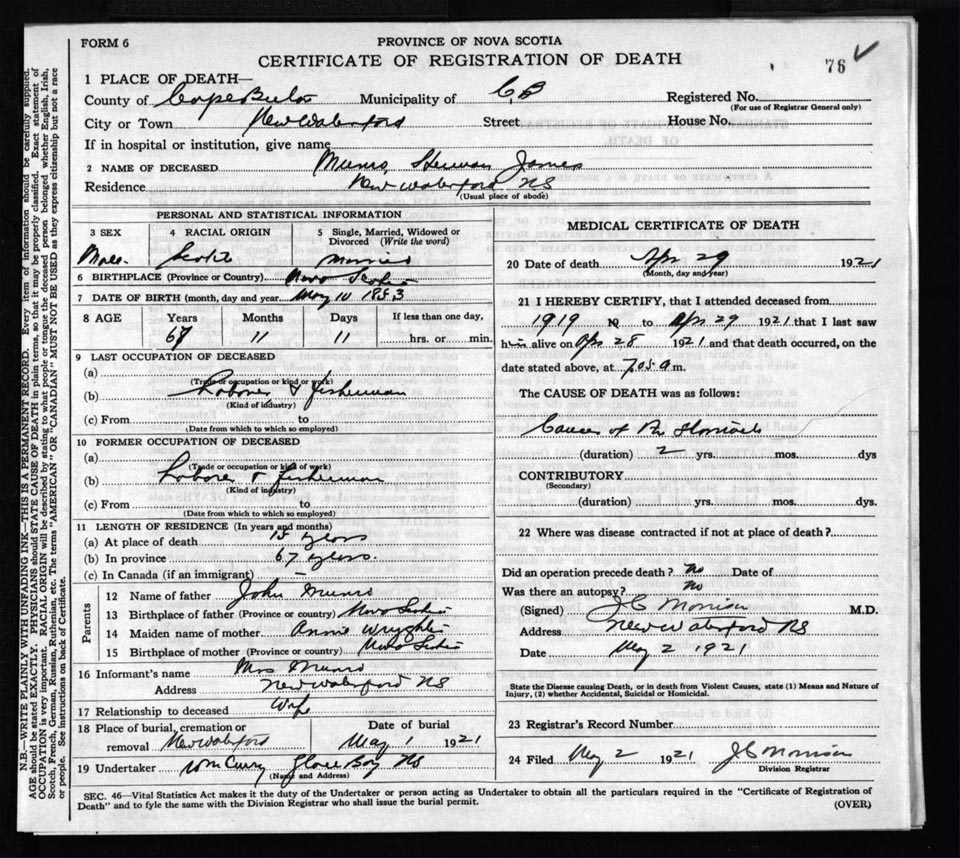 FORM 6
PROVINCE OF NOVA SCOTIA
CERTIFICATE OF REGISTRATION OF DEATH
76
1 PLACE OF DEATH—
County of Cape Breton Municipality of C,B Registered No.
(For use of Registrar General only)
City or Town New Waterford Street House No.
If in hospital or institution, give name
2 NAME OF DECEASED Munro, James
Residence New Waterford NS
(Usual place of abode)
PERSONAL AND STATISTICAL INFORMATION
3 SEX Male
4 RACIAL ORIGIN Scotch
5 Single, Married, Widowed or Divorced (Write the word) Married
6 BIRTHPLACE (Province or Country) Nova Scotia
7 DATE OF BIRTH (month, day and year) May 10 1853
8 AGE Years Months Days If less than one day,
67 11 11 hrs. or min.
9 LAST OCCUPATION OF DECEASED
(a)
(Trade or occupation or kind of work)
(b) Laborer & fisherman
(Kind of industry)
(c) From to
(Date from which to which so employed)
10 FORMER OCCUPATION OF DECEASED
(a)
(Trade or occupation or kind of work)
(b) Laborer & fisherman
(Kind of industry)
(c) From to
(Date from which to which so employed)
11 LENGTH OF RESIDENCE (In years and months)
(a) At place of death 15 years
(b) In province 67 years.
(c) In Canada (if an immigrant) –
Parents
12 Name of father John Munro
13 Birthplace of father (Province or country) Nova Scotia
14 Maiden name of mother Annie
15 Birthplace of mother (Province or country) Nova Scotia
16 Informant's name Mrs Munro
Address New Waterford NS
17 Relationship to deceased Wife
18 Place of burial, cremation or removal New Waterford Date of burial May 1 1921
19 Undertaker Wm Curry Glace Bay NS
(Name and Address)
MEDICAL CERTIFICATE OF DEATH
20 Date of death Apr 29 1921
(Month, day and year)
21 I HEREBY CERTIFY, that I attended deceased from
1919 19 to Apr 29 1921 that I last saw
him alive on Apr 28 1921 and that death occurred, on the
date stated above, at 7.05 a m.
The CAUSE OF DEATH was as follows:
Cancer of the Stomach
(duration) 2 yrs. mos. dys
CONTRIBUTORY
(Secondary)
(duration) yrs. mos. dys.
22 Where was disease contracted if not at place of death?
Did an operation precede death? no Date of
Was there an autopsy? no
(Signed) J C Morrison M.D.
Address New Waterford NS
Date May 2 1921
State the Disease causing Death, or in death from Violent Causes, state (1) Means and Nature of
Injury, (2) whether Accidental, Suicidal or Homicidal.
23 Registrar's Record Number
24 Filed May 2 1921 J C Morrison
Division Registrar
SEC. 46—Vital Statistics Act makes it the duty of the Undertaker or person acting as Undertaker to obtain all the particulars required in the "Certificate of Registration of
Death" and to fyle the same with the Division Registrar who shall issue the burial permit.
(OVER)
N.B.—WRITE PLAINLY WITH UNFADING INK—THIS IS A PERMANENT RECORD. Every item of information should be carefully supplied.
AGE should be stated EXACTLY. PHYSICIANS should STATE CAUSE OF DEATH in plain terms, so that it may be properly classified. Exact statement of
OCCUPATION is very important. RACIAL ORIGIN will be described by stating to what people or tongue the deceased person belonged whether English, Irish,
Scotch, French, German, Russian, Ruthenian, etc. The terms "AMERICAN" OR "CANADIAN" MUST NOT BE USED as they express citizenship but not a race
or people. See instructions on back of Certificate.